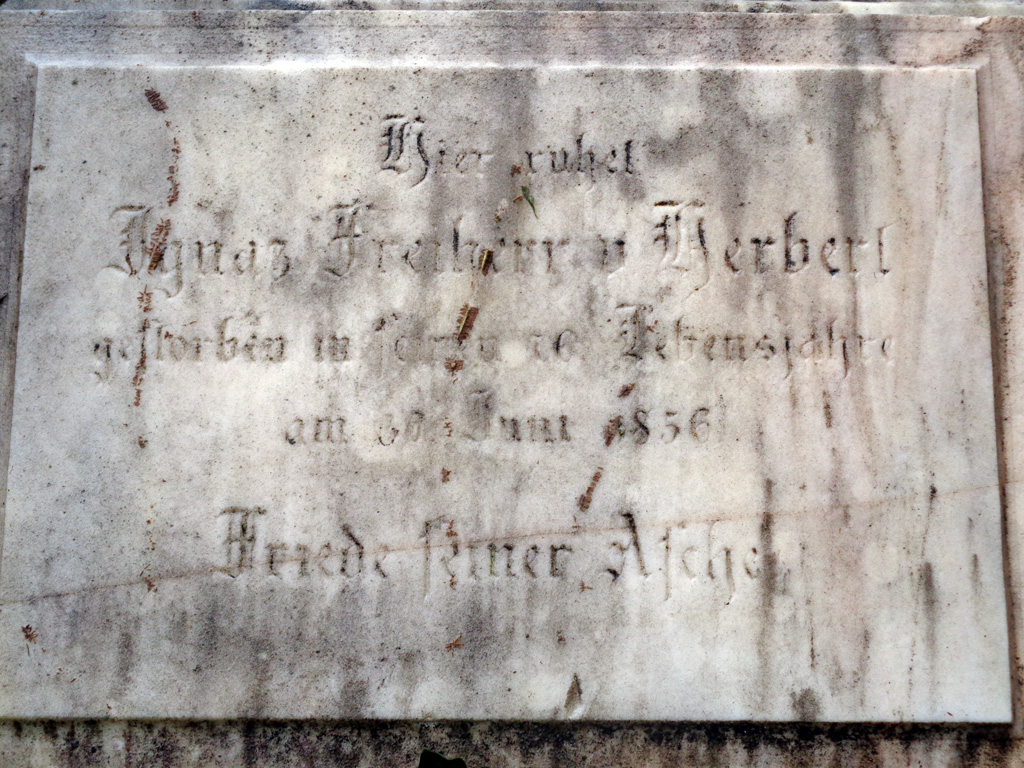 Hier ruhet
Ignaz Freiherr v Herbert
gestorben in seinem Lebensjahre
am 30 Juni 1856
Friede seiner Asche